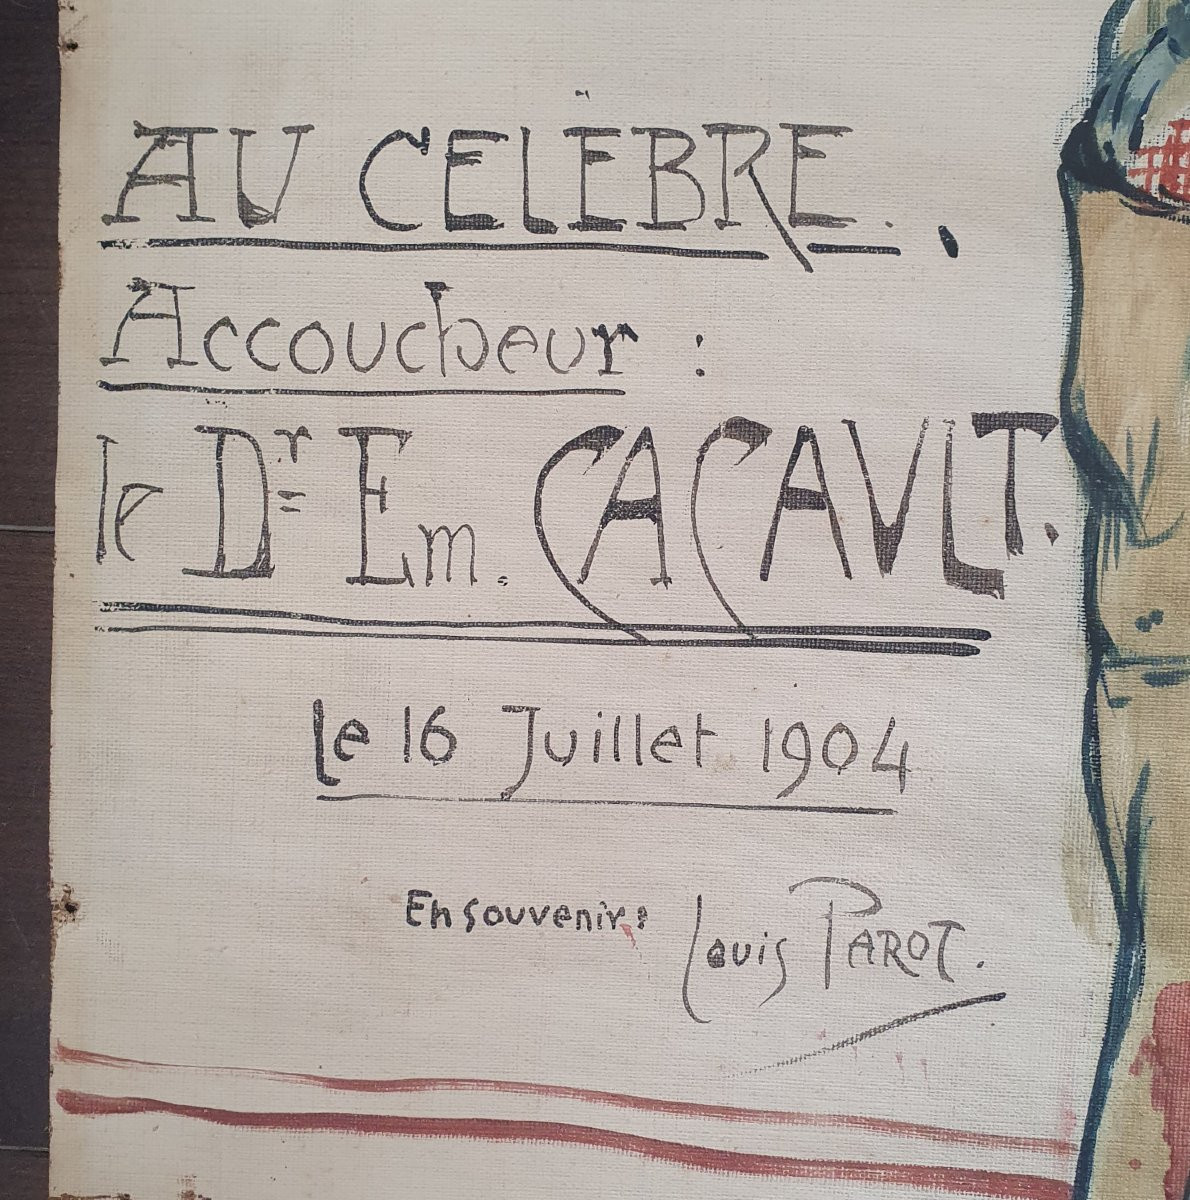 AU CELÈBRE.
Accoucheur :
le Dr Em. CACAULT.
Le 16 Juillet 1904
En souvenir : Louis PAROT.